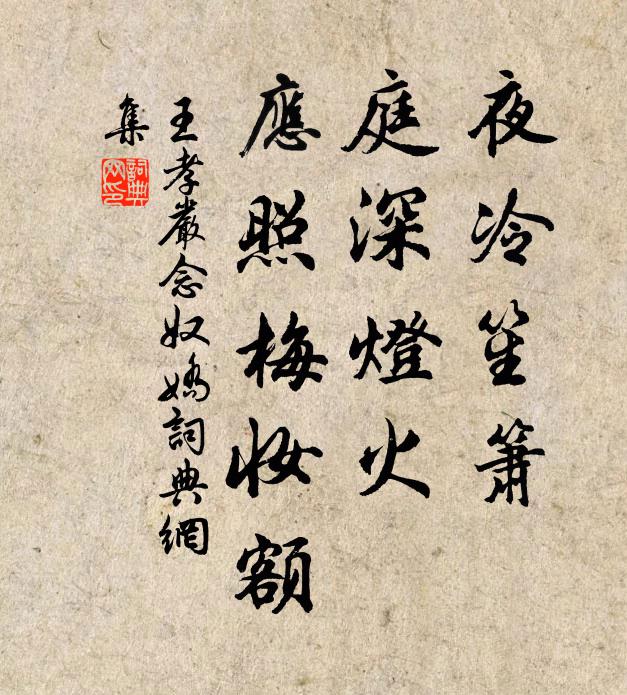 夜冷笙簫
庭深燈火
應照梅妝額
王孝嚴念奴嬌詞典網
集
詞典網印